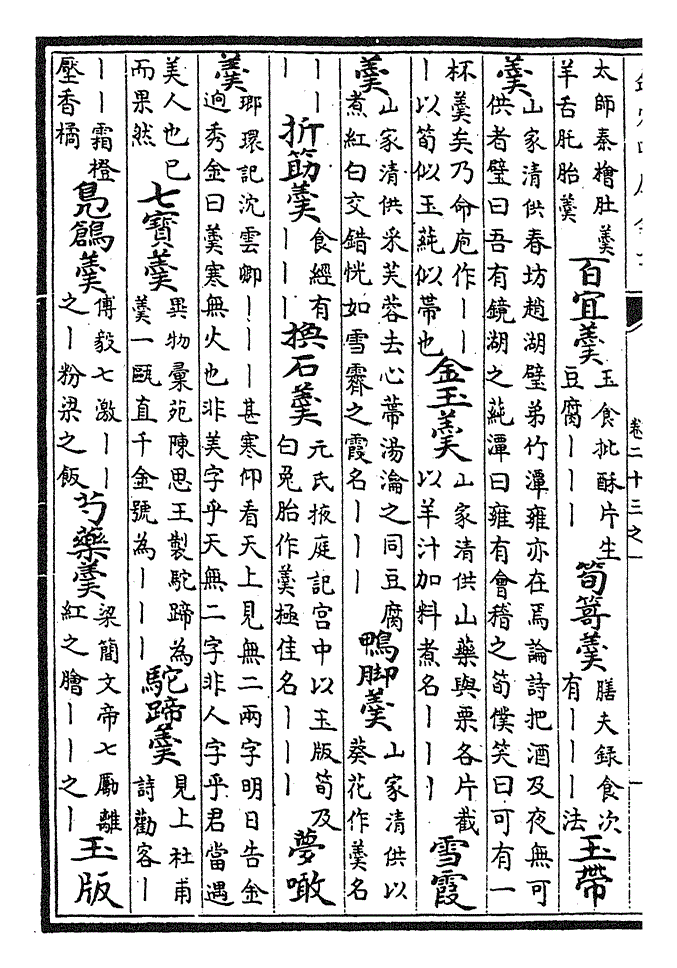 卷二十三之一
一
太師秦檜肚羹
羊舌肫胎羹
百宜羹
玉食批酥片生
豆腐丨丨丨
筍羹
膳夫錄食次
有丨丨丨法
玉帶
羹
山家清供春坊趙湖璧弟竹潭雍亦在焉論詩把酒及夜無可
供者璧曰吾有鏡湖之蒓潭曰雍有會稽之筍僕笑曰可有一
杯羹矣乃命庖作丨丨
丨以筍似玉蒓似帶也
金玉羹
山家清供山藥與栗各片截
以羊汁加料煮名丨丨丨
雪霞
羹
山家清供采芙蓉去心蒂湯瀹之同豆腐
煮紅白交錯恍如雪霽之霞名丨丨丨
鴨脚羹
山家清供以
葵花作羹名
丨丨
丨
折筯羹
食經有
丨丨丨
換石羹
元氏掖庭記宮中以玉版筍及
白兔胎作羹極佳名丨丨丨
夢噉
羹
瑯環記沈雲卿丨丨丨甚寒仰看天上見無二兩字明日告金
迥秀金曰羹寒無火也非美字乎天無二字非人字乎君當遇
美人也已
而果然
七寶羹
異物彙苑陳思王製駝蹄為
羹一甌直千金號為丨丨丨
駝蹄羹
見上杜甫
詩勸客丨
丨丨霜橙
壓香橘
鳧鶬羹
傅毅七激丨丨
之丨粉粱之飯
芍藥羹
梁簡文帝七勵離
紅之膾丨丨之丨
玉版